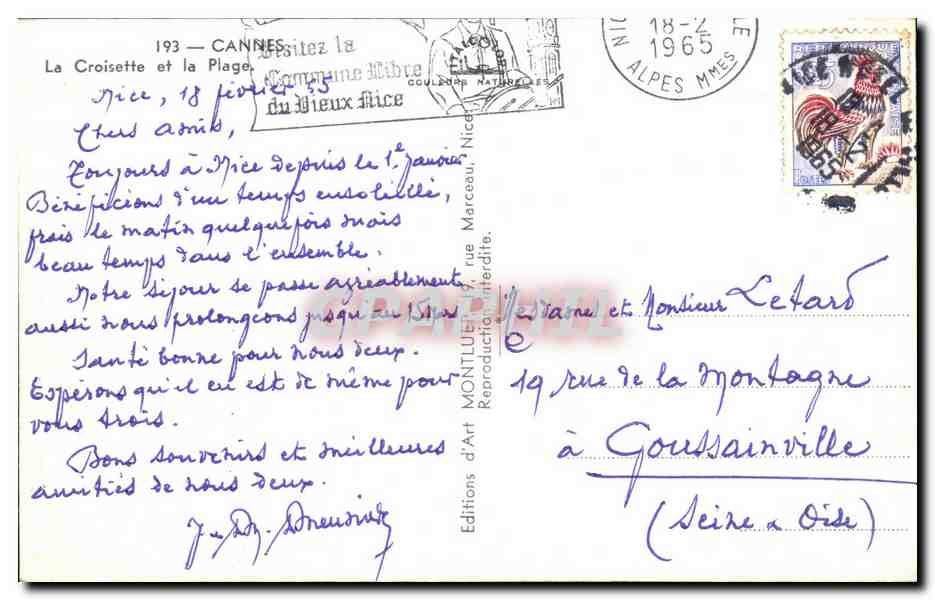 193 — CANNES
La Croisette et la Plage.
Visitez la
Commune Libre
du Vieux Nice
ITALCOLOR
COULEURS NATURELLES
18-2
1965
ALPES MMES
REPUBLIQUE
Nice, 18 février 55
Chers amis,
Toujours à Nice depuis le 1er Janvier
Bénéficions d'un temps ensoleillé,
frais le matin quelquefois mais
beau temps dans l'ensemble.
Notre séjour se passe agréablement
aussi nous prolongeons jusqu'au 15
Santé bonne pour nous deux.
Espérons qu'il en est de même pour
vous trois.
Bons souvenirs et meilleures
amitiés de nous deux.
Editions d'Art MONTLUET, 19, rue Marceau, Nice
Reproduction interdite.
CPARAMA
Mesdames et Monsieur Letard
19 rue de la Montagne
à Goussainville
(Seine & Oise)